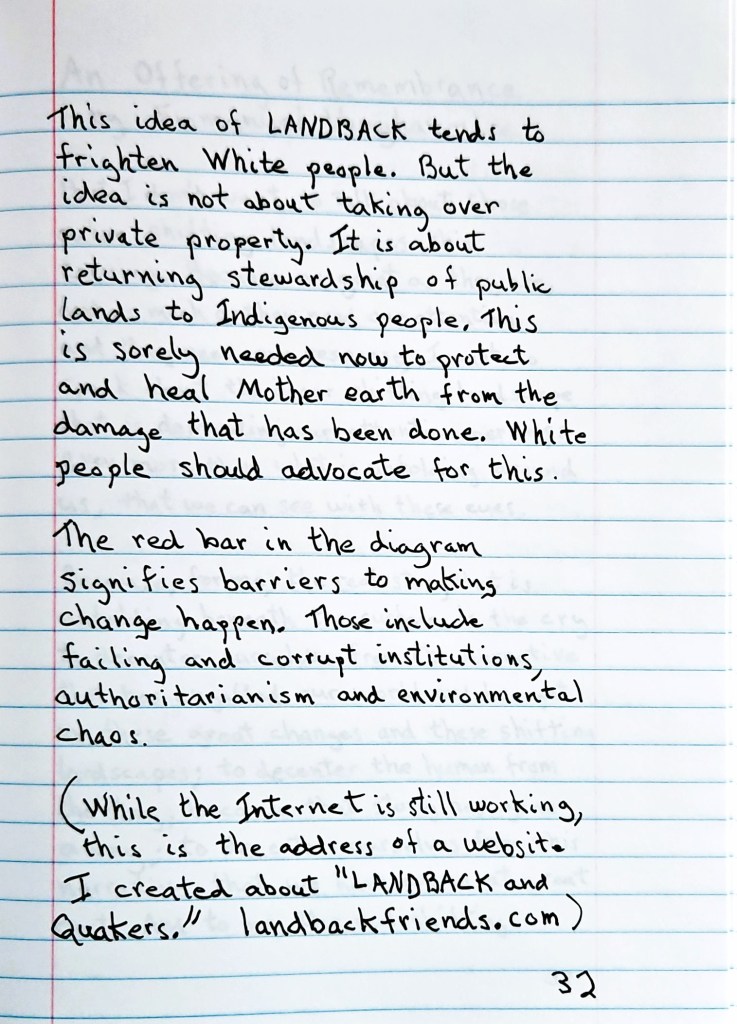 This idea of LANDBACK tends to
frighten White people. But the
idea is not about taking over
private property. It is about
returning stewardship of public
lands to Indigenous people. This
is sorely needed now to protect
and heal Mother earth from the
damage that has been done. White
people should advocate for this.
The red bar in the diagram
signifies barriers to making
change happen. Those include
failing and corrupt institutions,
authoritarianism and environmental
chaos.
(While the Internet is still working,
this is the address of a website
I created about "LANDBACK and
Quakers." landbackfriends.com)
32